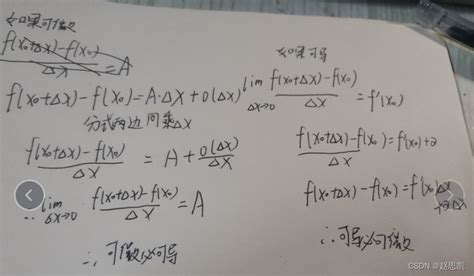 如果可微
f(x₀+Δx)-f(x₀)
Δx
=A
f(x₀+Δx)-f(x₀)=A·Δx+o(Δx)
分式两边同乘Δx
f(x₀+Δx)-f(x₀)
Δx
= A+ o(Δx)/Δx
∴ lim Δx→0
f(x₀+Δx)-f(x₀)
Δx
=A
∴可微必可导
如果可导
lim Δx→0
f(x₀+Δx)-f(x₀)
Δx
=f'(x₀)
f(x₀+Δx)-f(x₀)
Δx
=f'(x₀)+α
f(x₀+Δx)-f(x₀)=f'(x₀)Δx
+αΔx
∴可导必可微
CSDN @赵思凯